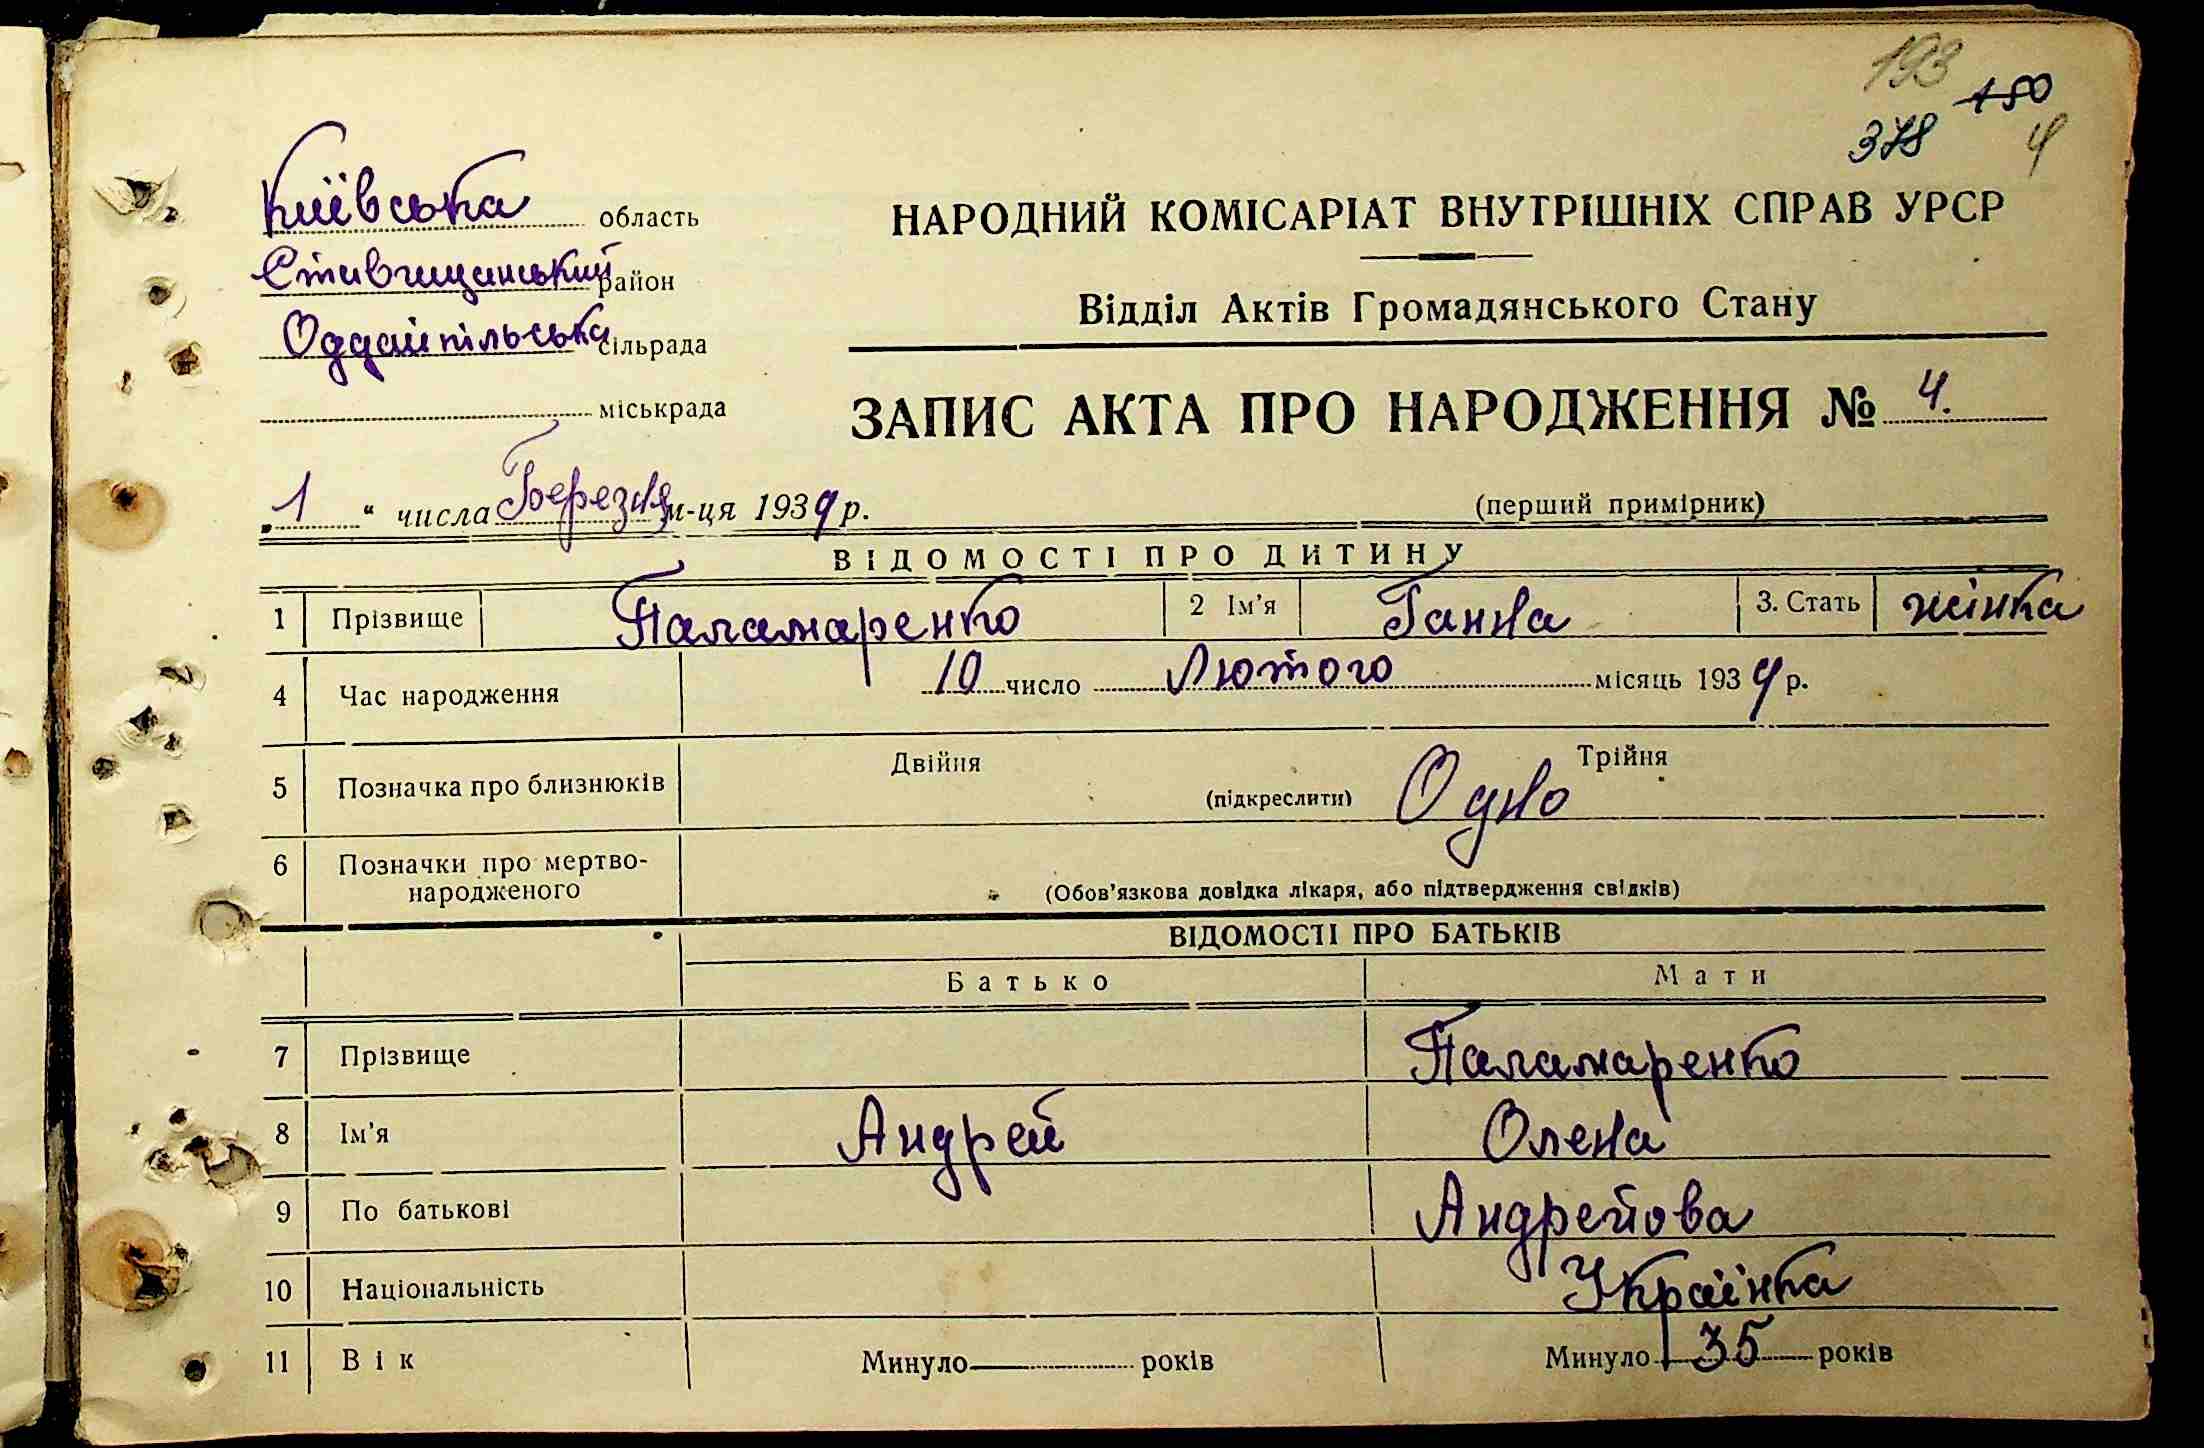 193
150
378 4
Київська область
Ставищанський район
Оддайпільська сільрада
міськрада
НАРОДНИЙ КОМІСАРІАТ ВНУТРІШНІХ СПРАВ УРСР
Відділ Актів Громадянського Стану
ЗАПИС АКТА ПРО НАРОДЖЕННЯ № 4.
„ 1 “ числа Березня м-ця 1939 р.
(перший примірник)
ВІДОМОСТІ ПРО ДИТИНУ
1 Прізвище Паламаренко 2 Ім'я Ганна 3. Стать жінка
4 Час народження 10 число Лютого місяць 1939 р.
5 Позначка про близнюків Двійня (підкреслити) Одно Трійня
6 Позначки про мертво-
народженого (Обов'язкова довідка лікаря, або підтвердження свідків)
ВІДОМОСТІ ПРО БАТЬКІВ
Батько Мати
7 Прізвище Паламаренко
8 Ім'я Андрей Олена
9 По батькові Андрейова
10 Національність Українка
11 Вік Минуло років Минуло 35 років